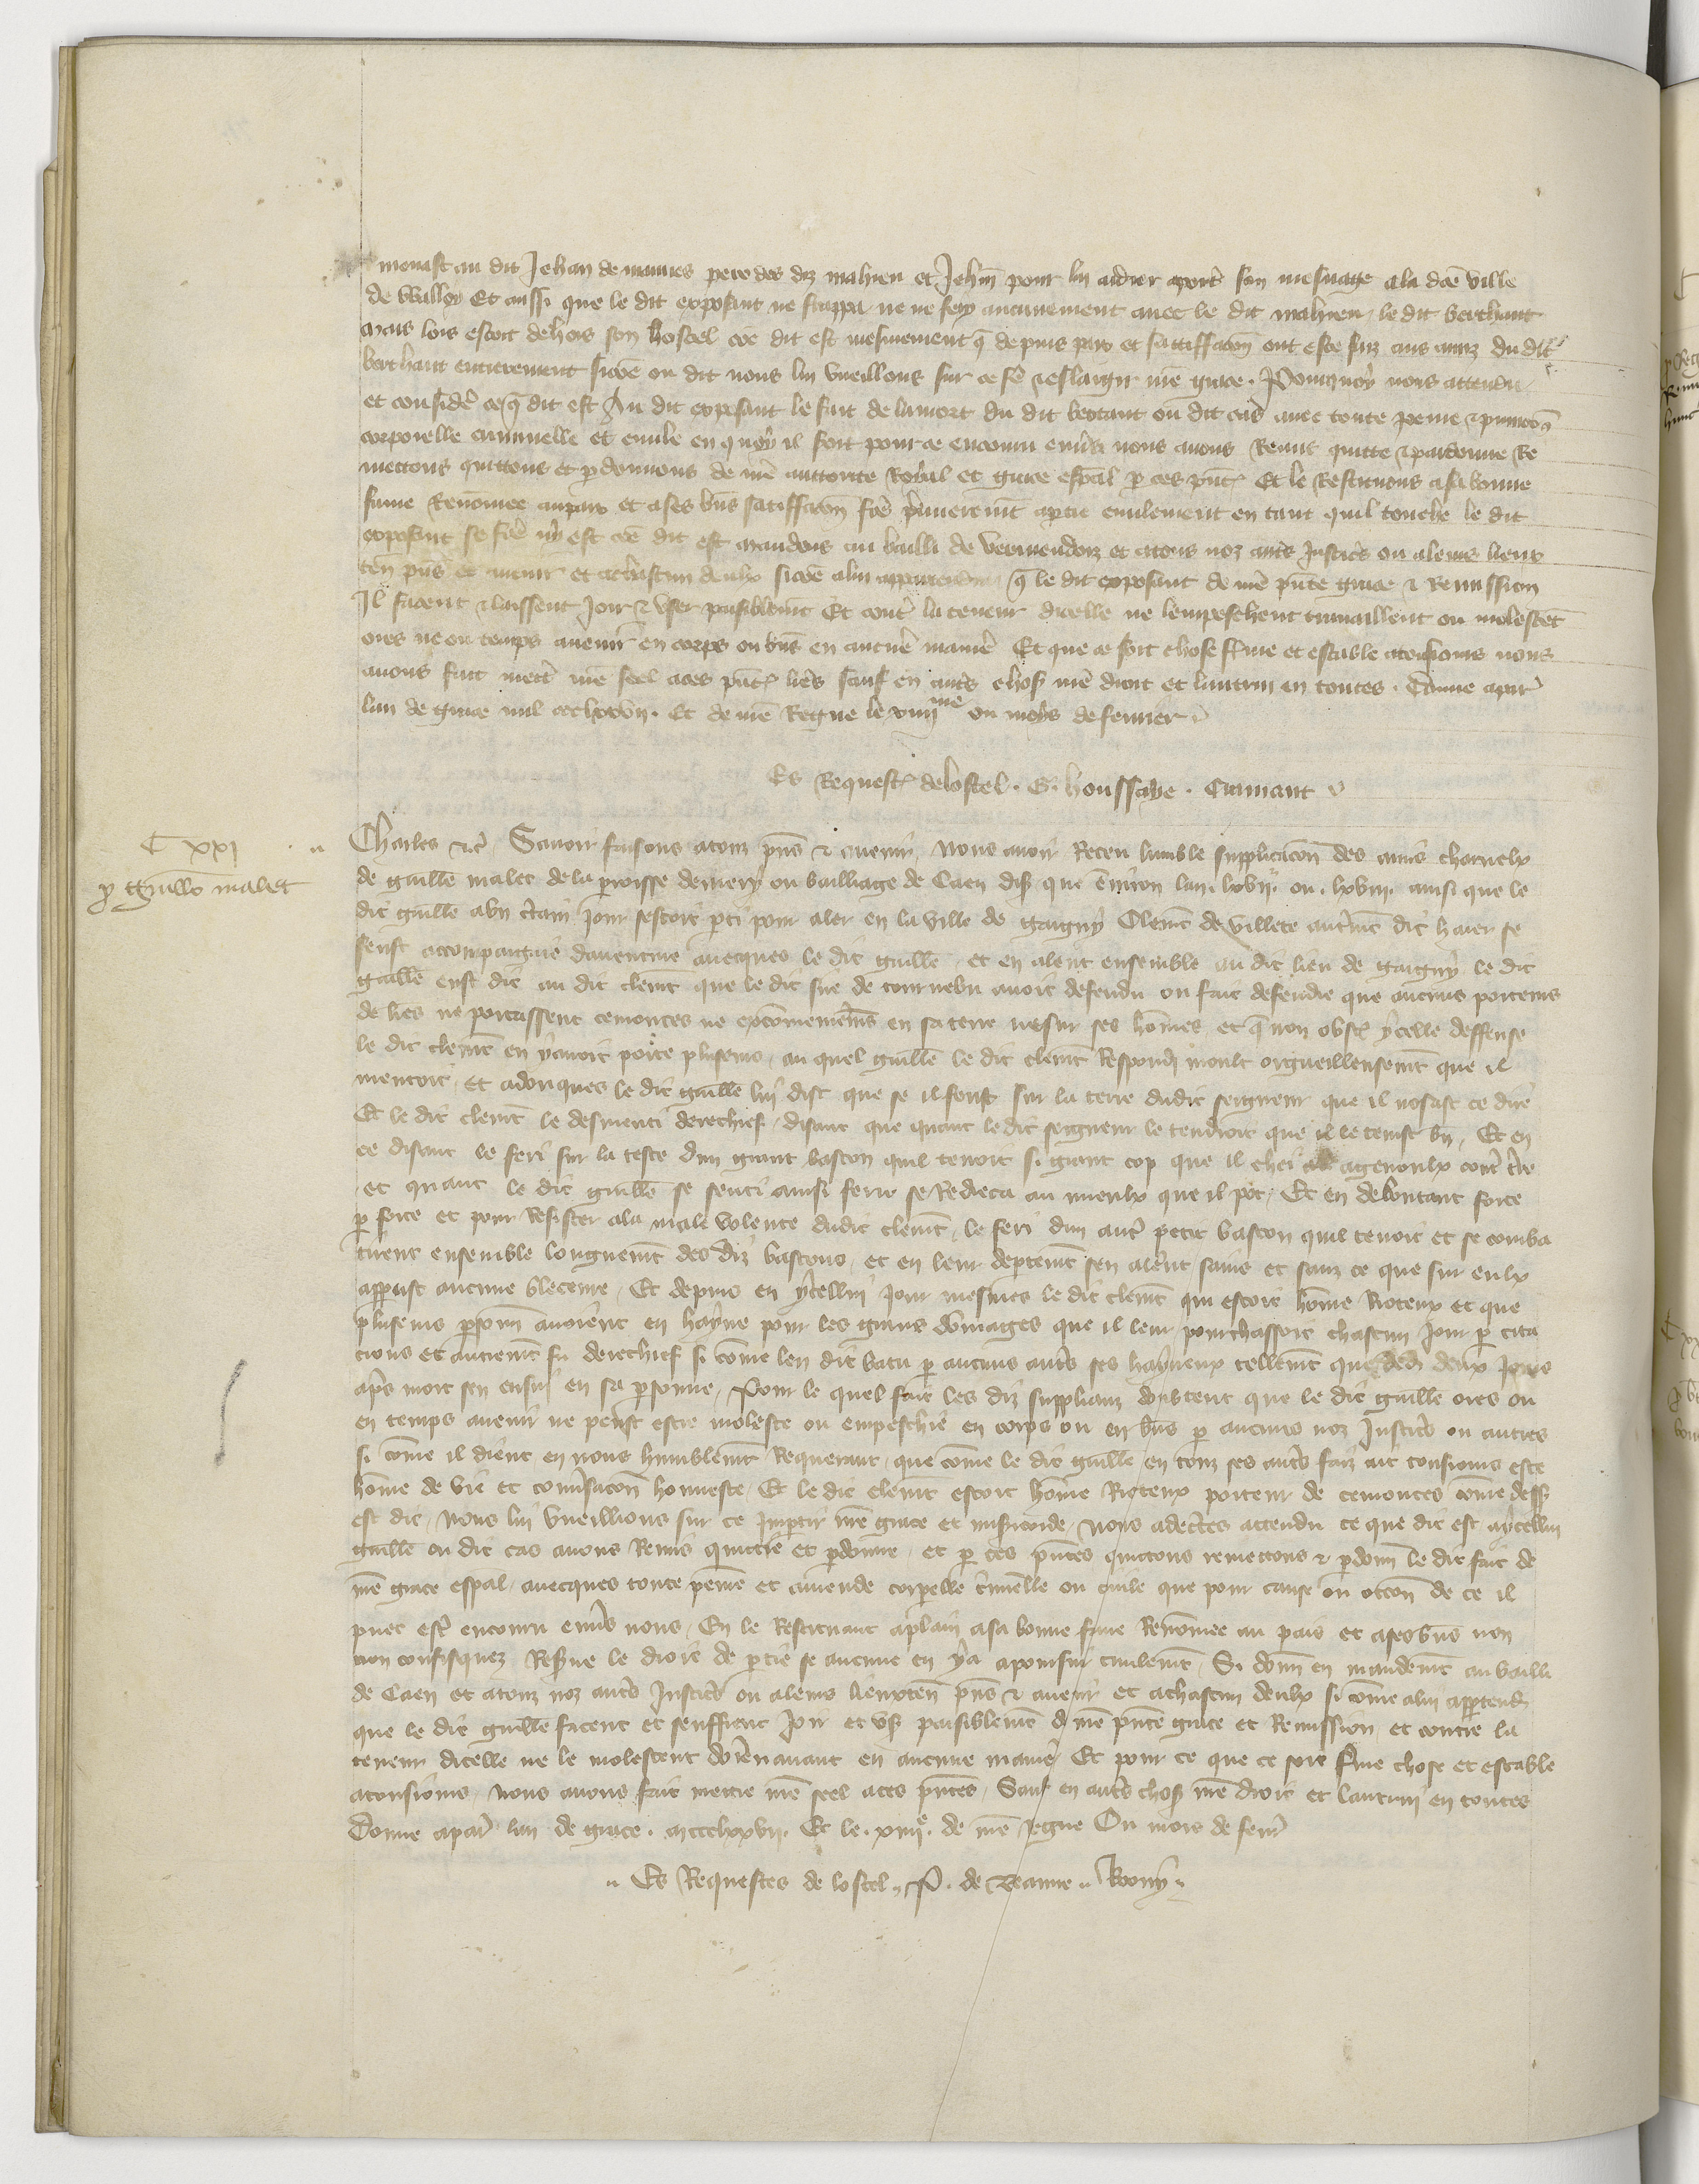 monast au dit Jehan de maures pere des diz mahieu et Jehan pour lui aidier aport son mesnaige a la dce ville
de Wailly Et aussi que le dit exposant ne frappa ne ne fery aucunement avec le dit mahieu le dit berthaut
mais lors estoit dehors son hostel coe dit est mesmement q depuis paix et satiffacon ont este faiz aus amis du dit
berthaut entierement sicoe on dit nous lui vueillons sur ce fe eslargir nre grace. Pourquoy nous attendu
et conside ce q dit est Au dit exposant le fait de la mort du dit bertaut ou dit cas avec toute peine & punicon
corporelle criminelle et civile en quoy il soit pour ce encouru envs nous avons Remis quitte & pardonne Re
mettons quittons et pdonnons de nre auttorite Royal et grace espal p ces pnt Et le Restituons a sa bonne
fame Renomee au pais et a ses bns satiffacon fce premierent a ptie civilement en tant quil touche le dit
exposant se fce ny est coe dit est Mandons au bailli de Vermendois et a tous noz auts Justics ou a leurs lieux
ten pns et avenir et a chascun deulx sicoe a lui appartendra q le dit exposant de nre pnte grace & Remission
Il facent & laissent Joir & user paisiblemt Et cont la teneur dicelle ne lempeschent travaillent ou molestet
ores ne ou temps avenir en corps ou bns en aucune manie Et que ce soit chose ferme et estable a tousiours nous
avons fait mett nre seel a ces pnt lres sauf en auts choses nre droit et lautrui en toutes. Donne a par
lan de grace mil ccclxxvii. Et de nre Regne le xiiiime ou moys de fevrier
Es Request de lostel. G. houssaye. Cramant
C xxi
p Guillo malet
Charles &c Savoir faisons a touz pns & avenir Nous avoir Receu lumble supplicacon des amis charnelx
de guille malet de la proisse de mery ou bailliage de Caen dis que environ lan lxvii ou lxviii ainsi que le
dit guille a un ctain Jour sestoit pti pour aler en la ville de gargny Clemt de villete autremt dit haier se
feust accompaignie daventure avecques le dit guille et en alent ensemble au dit lieu de gargny le dit
guille eust dit au dit clemt que le dit sire de tournebu avoit defendu ou fait defendre que aucuns porteurs
de lres ne portassent cemonces ne excomeniemens en sa terre ne sur ses homes et q non obst ycelle deffense
le dit clemt en y avoit porte pluseurs au quel guille le dit clemt Respondi moult orgueilleusemt que il
mentoit Et adonques le dit guille lui dist que se il feust sur la terre dudit seigneur que il nosast ce dire
Et le dit clemt le desmenti derechief disant que quant le dit seigneur le tendroit que il le tenist bn Et en
ce disant le feri sur la teste dun grant baston quil tenoit si grant cop que il chei a genoulx cont tre
et quant le dit guille se senti ainsi feru se Redreca au mieulx que il pot Et en deboutant force
p force et pour Resister a la male volente dudit clemt le feri dun aut petit baston quil tenoit et se comba
tirent ensemble longuemt des diz bastons et en leur deptemt sen alent sains et sanz ce que sur eulx
apparust aucune bleceure Et depuis en ycellui Jour mesmes le dit clemt qui estoit home Rioteux et que
pluseurs psonn avoient en hayne pour les grans domages que il leur pourchassoit chascun Jour p cita
cions et autremt fu derechief si come len dit batu p aucuns auts ses hayneux tellemt que dedens deux Jours
aps mort sen ensui en sa psonne Pour le quel fait les diz supplianz doubtent que le dit guille ores ou
en temps avenir ne peust estre moleste ou empeschie en corps ou en bns p aucuns noz Justics ou autres
si come il dient en nous humblemt Requerant que come le dit guille en touz ses auts faiz ait tousiours este
home de vie et convsacon honneste Et le dit clemt estoit home Rioteux porteur de cemonces come dess
est dit nous lui vueillions sur ce Impartir nre grace et misicorde Nous adectes attendu ce que dit est a ycellui
guille ou dit cas avons Remis quittie et pdonne et p ces pntes quittons remettons & pdonn le dit fait de
nre grace espal avecques toute peine et amende corpelle criminelle ou civile que pour cause ou occon de ce il
puet est encouru envs nous En le Restituant a plain a sa bonne fame Renomee au pais et a ses bns non
non confisquez Resve le droit de ptie se aucune en y a a poursuir civilemt Si donn en mandemt au bailli
de Caen et a touz noz auts Justics ou a leurs lieuxten pns & avenir et a chascun deulx si come a lui appartendra
que le dit guille facent et seuffrent Joir et us paisiblemt d nre pnte grace et Remission et contre la
teneur dicelle ne le molestent dorenavant en aucune manie Et pour ce que ce soit ferme chose et estable
a tousiours Nous avons fait mettre nre seel a ces pntes Sauf en auts chos nre droit et lautrui en toutes
Donne a par lan de grace. mccclxxvii. Et le. xiiiie. de nre regne Ou mois de fevr
Es Requestes de lostel P. de Veanne Roony